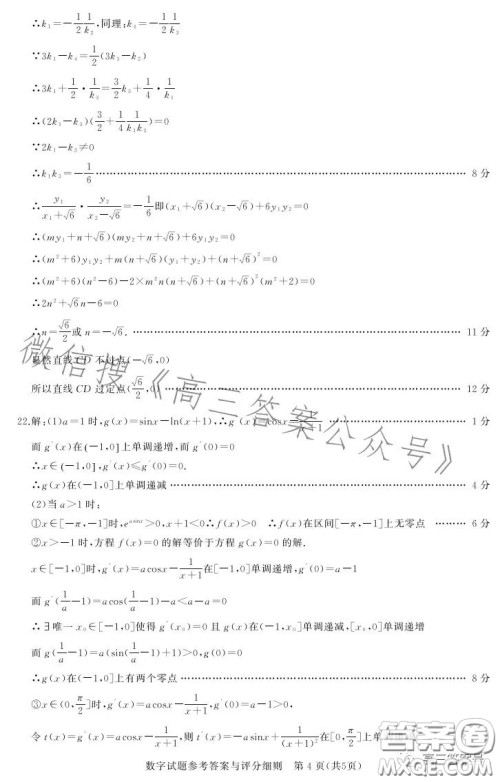 ∴k₁=-1/2·1/k₂,同理:k₄=-1/2·1/k₃
∵3k₁-k₄=1/2(3k₃-k₂)
∴3k₁+1/2·1/k₃=3/2k₃+1/4·1/k₁
∴(2k₁-k₃)(3/2+1/4·1/k₁k₃)=0
∵2k₁-k₃≠0
∴k₁k₃=-1/6 8分
∴y₁/(x₁+√6)·y₂/(x₂-√6)=-1/6即(x₁+√6)(x₂-√6)+6y₁y₂=0
∴(my₁+n+√6)(my₂+n+√6)+6y₁y₂=0
∴(m²+6)y₁y₂+m(n+√6)(y₁+y₂)+(n+√6)²=0
∴(m²+6)(n²-6)-2×m²n(n+√6)+(n+√6)²(m²+2)=0
∴2n²+√6n-6=0
∴n=√6/2或n=-√6. 11分
显然直线CD不过点(-√6,0)
所以直线CD过定点(√6/2,0) 12分
22.解:(1)a=1时,g(x)=sinx-ln(x+1),∴g′(x)=cosx-1/(x+1) 1分
而g′(x)在(-1,0]上单调递增,而g′(0)=0
∴x∈(-1,0],g′(x)≤g′(0)=0.
∴g(x)在(-1,0]上单调递减 4分
(2)当a>1时:
①x∈[-π,-1]时,e^{asinx}>0,x+1<0∴f(x)>0 ∴f(x)在区间[-π,-1]上无零点 6分
②x>-1时,方程f(x)=0的解等价于方程g(x)=0的解.
x∈[-1,0]时,g′(x)=acosx-1/(x+1)在[-1,0]单调递增,g′(0)=a-1
而g′(1/a-1)=acos(1/a-1)-a<a-a=0
∴∃唯一x₀∈[-1,0]使得g′(x₀)=0且g(x)在(-1,x₀]单调递减,[x₀,0]单调递增
而g(1/a-1)=a(sin(1/a-1)+1)>0,g(0)=0
∴g(x)在(-1,0]上有两个零点 8分
③x∈(0,π/2]时,g′(x)=acosx-1/(x+1),g′(0)=a-1>0,
令t(x)=g′(x)=acosx-1/(x+1),则t′(x)=-asinx+1/(x+1)²在[0,π/2]上单
数字试题参考答案与评分细则 第4页(共5页)
微信搜《高三答案公众号》
答案圈
MXQE.COM